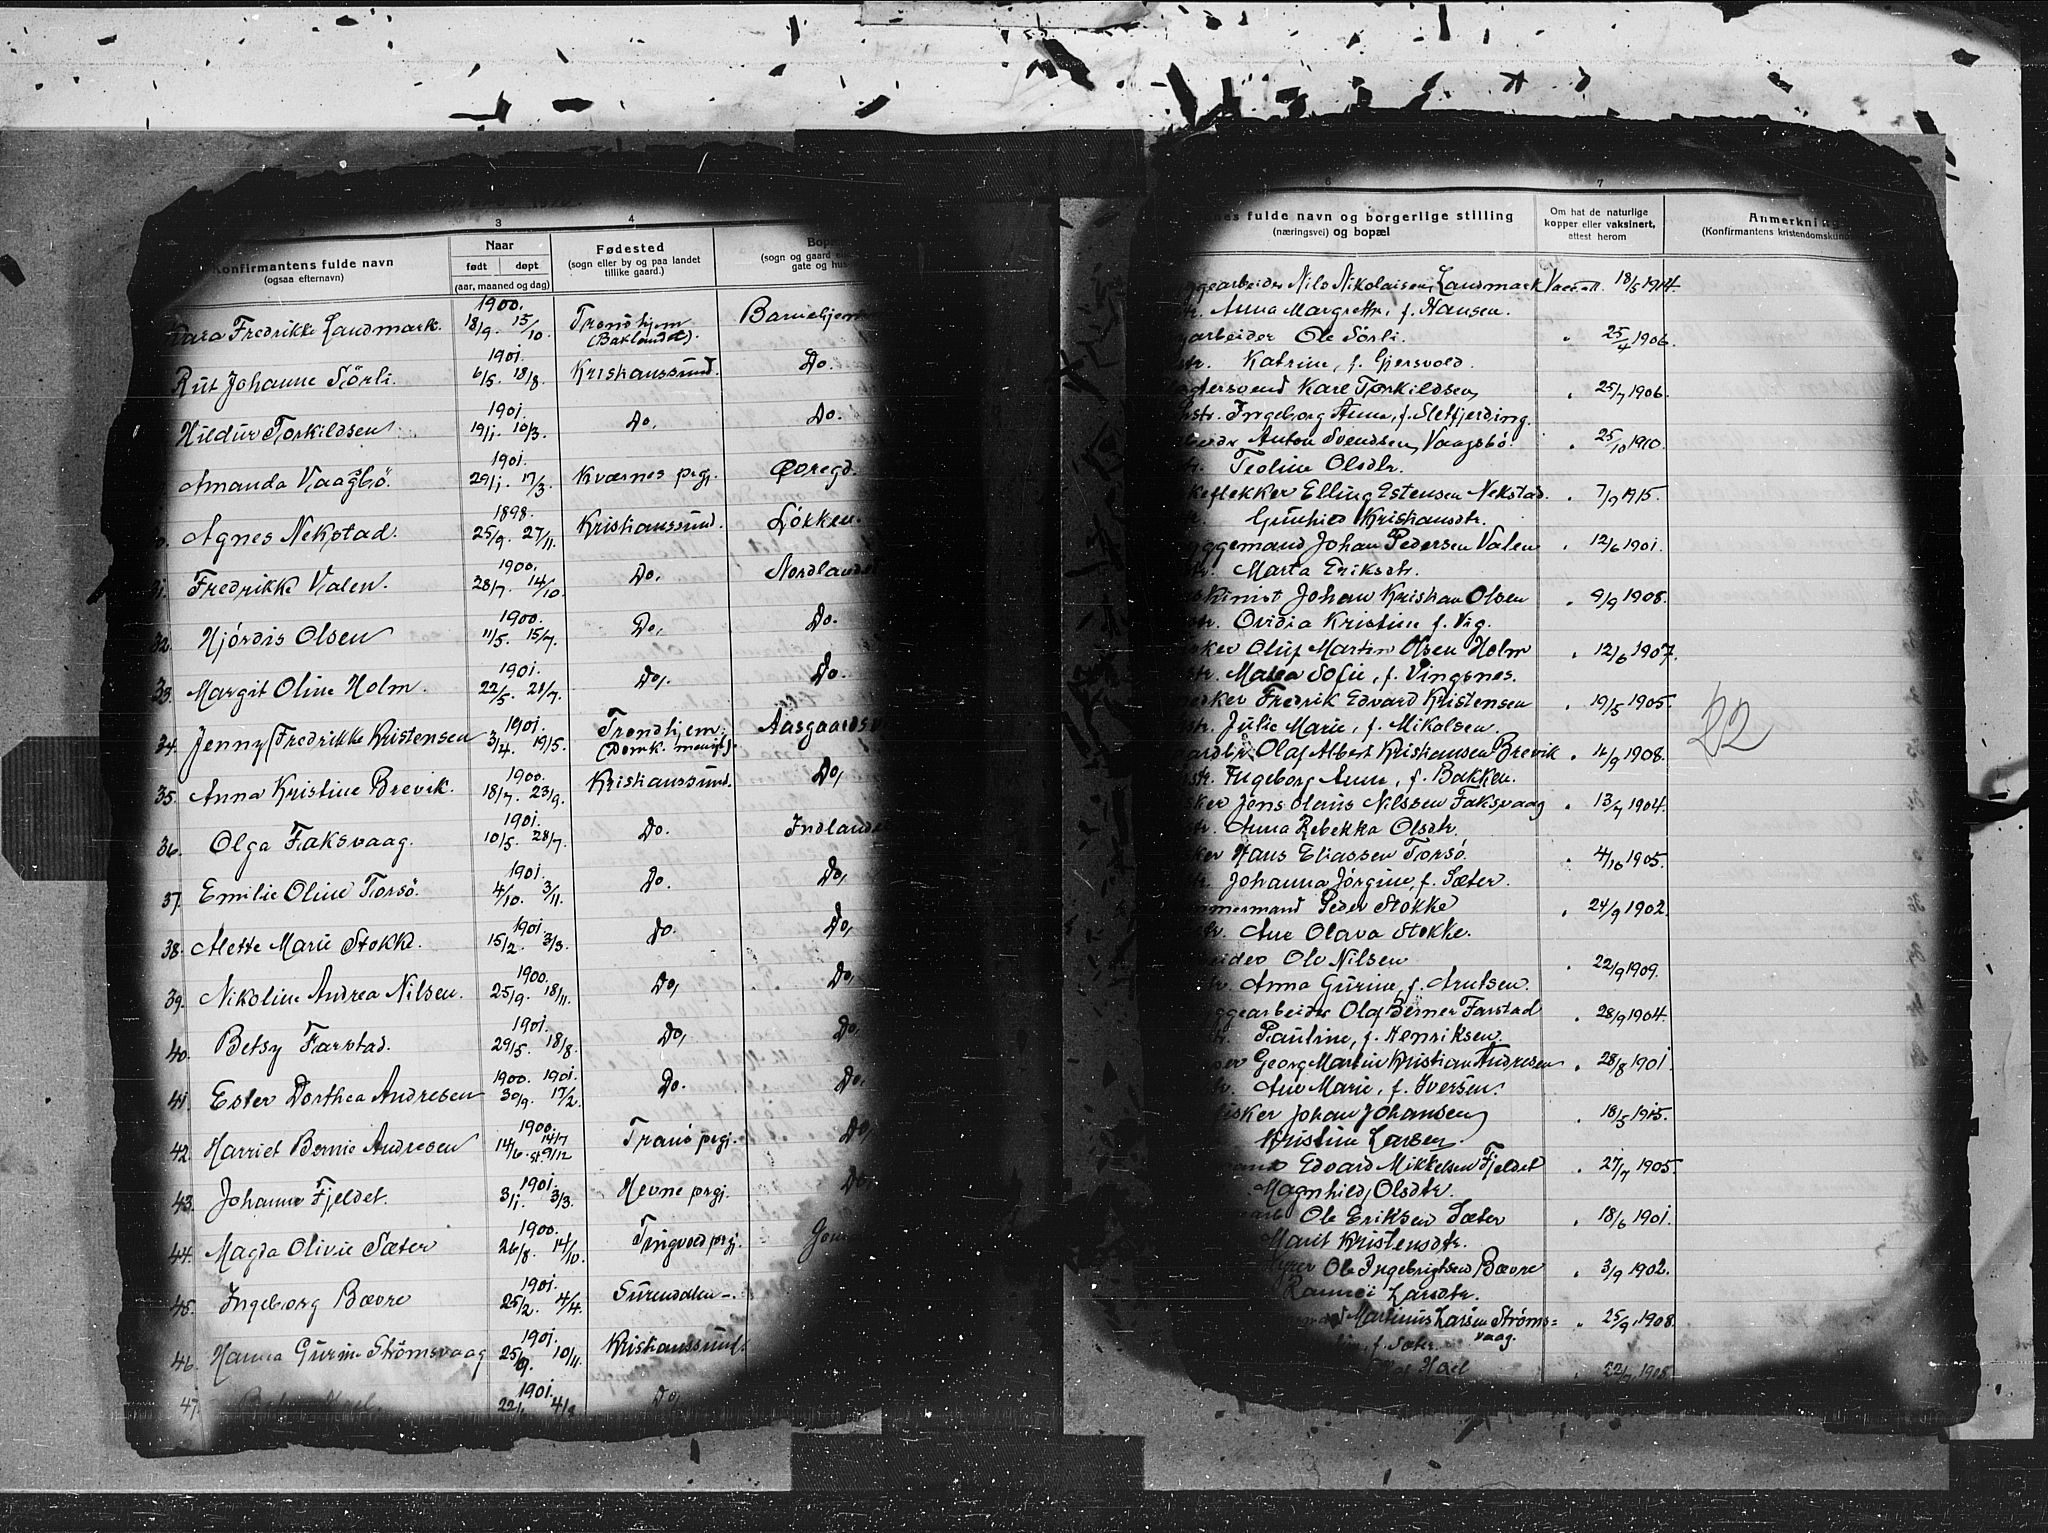 2
3
4
Konfirmantens fulde navn
(ogsaa efternavn)
Naar
født døpt
(aar, maaned og dag)
Fødested
(sogn eller by og paa landet
tillike gaard.)
(sogn og gaard
gate og hus
1900.
Fredrikke Landmark. 18/9. 15/10. Trondhjem
(Baklandet).
1901.
Rut Johanne Sörli. 6/5. 18/8. Kristianssund. Do.
1901.
Hildur Torkildsen 19/1. 10/3. Do. Do.
1901.
Amanda Vaagbö. 29/1. 17/3. Kværnes prgj. Öoregd.
1898.
Agnes Nekstad. 25/9. 27/11. Kristianssund. Lökken.
1900.
31. Fredrikke Valen. 28/7. 14/10. Do. Nordlandet
1900.
32. Hjördis Olsen 11/5. 15/7. Do. Do.
1901.
33. Margit Oline Holm. 22/5. 21/7. Do. Do.
1901.
34. Jenny Fredrikke Kristensen 3/4. 19/5. Trondhjem.
(Domk. menigh).
1900.
35. Anna Kristine Brevik. 18/7. 23/9. Kristianssund. Do.
1901.
36. Olga Faksvaag. 10/5. 28/7. Do. Indlandet
1901.
37. Emilie Oline Torsö. 4/10. 3/11. Do. Do.
1901.
38. Alette Marie Stokke. 15/2. 3/3. Do. Do.
1900.
39. Nikoline Andrea Nilsen. 25/9. 18/11. Do. Do.
1901.
40. Betsy Farstad. 29/5. 18/8. Do. Do.
1900. 1901.
41. Ester Dorthea Andresen 30/9. 17/2. Do. Do.
1900.
42. Harriet Bernie Andresen 14/6. 14/7 st. 9/12 Tranö prgj. Do.
1901.
43. Johanne Fjeldet. 3/1. 3/3. Hevne prgj. Do.
1900.
44. Magda Olivie Sæter 26/8. 14/10. Tingvold prgj.
1901.
45. Ingeborg Bævre 25/2. 4/4. Surendalen
1901.
46. Hanna Gurine Strømsvaag 25/9. 10/11. Kristianssund.
1901.
47. Do.
6
7
fulde navn og borgerlige stilling
(næringsvei) og bopæl
Om hat de naturlige
kopper eller vaksinert,
attest herom
Anmerkning
(Konfirmantens kristendomskund
Nils Nikolaisen Landmark 18/5 1914.
Anna Margrethe, f. Hansen.
arbeider Ole Sörli. " 25/4 1906.
Katrine, f. Gjersvold.
Karl Torkildsen " 25/7 1906.
Ingeborg Anna, f. Sletfjerding.
Anton Svendsen Vaagsbö. " 25/10 1910.
Teoline Olsdtr.
Elling Estensen Nekstad. " 7/9 1915.
Gunhild Kristiansdtr.
Johan Pedersen Valen " 12/6 1901.
Marta Eriksdtr.
Johan Kristian Olsen " 9/9 1908.
Ovidia Kristine f. Vig.
Oluf Martin Olsen Holm " 12/6 1907.
Sofie, f. Vingsnes.
Fredrik Edvard Kristensen " 19/5 1905.
Julie Marie, f. Mikalsen.
22
Olaf Albert Kristiansen Brevik " 14/9 1908.
Ingeborg Anne, f. Bakken.
Jens Olaus Nilssen Faksvaag " 13/7 1904.
Anna Rebekka Olsdtr.
Hans Eliassen Torsö. " 4/10 1905.
Johanna Jörgine, f. Sæter.
Peder Stokke " 24/9 1902.
Ane Olava Stokke.
Ole Nilsen " 22/9 1909.
Anna Gurine, f. Arntsen.
Olaf Berner Farstad " 28/9 1904.
Pauline, f. Henriksen.
Georg Martin Kristian Andresen " 28/8 1901.
Ane Marie, f. Iversen.
fisker Johan Johansen " 18/5 1915.
Kristine Larsen.
Edvard Mikkelsen Fjeldet " 27/7 1905.
Magnhild Olsdtr.
Ole Eriksen Sæter " 18/6 1901.
Marit Kristensdtr.
Ole Ingebrigtsen Bævre " 3/9 1902.
Larsdtr.
Martinus Larsen Strøms= " 25/9 1908.
vaag.
f. Sæter.